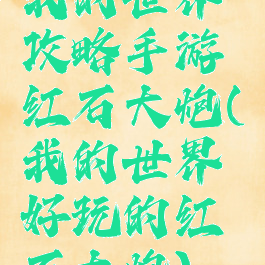 我的世界
攻略手游
红石大炮(
我的世界
好玩的红
石大炮)